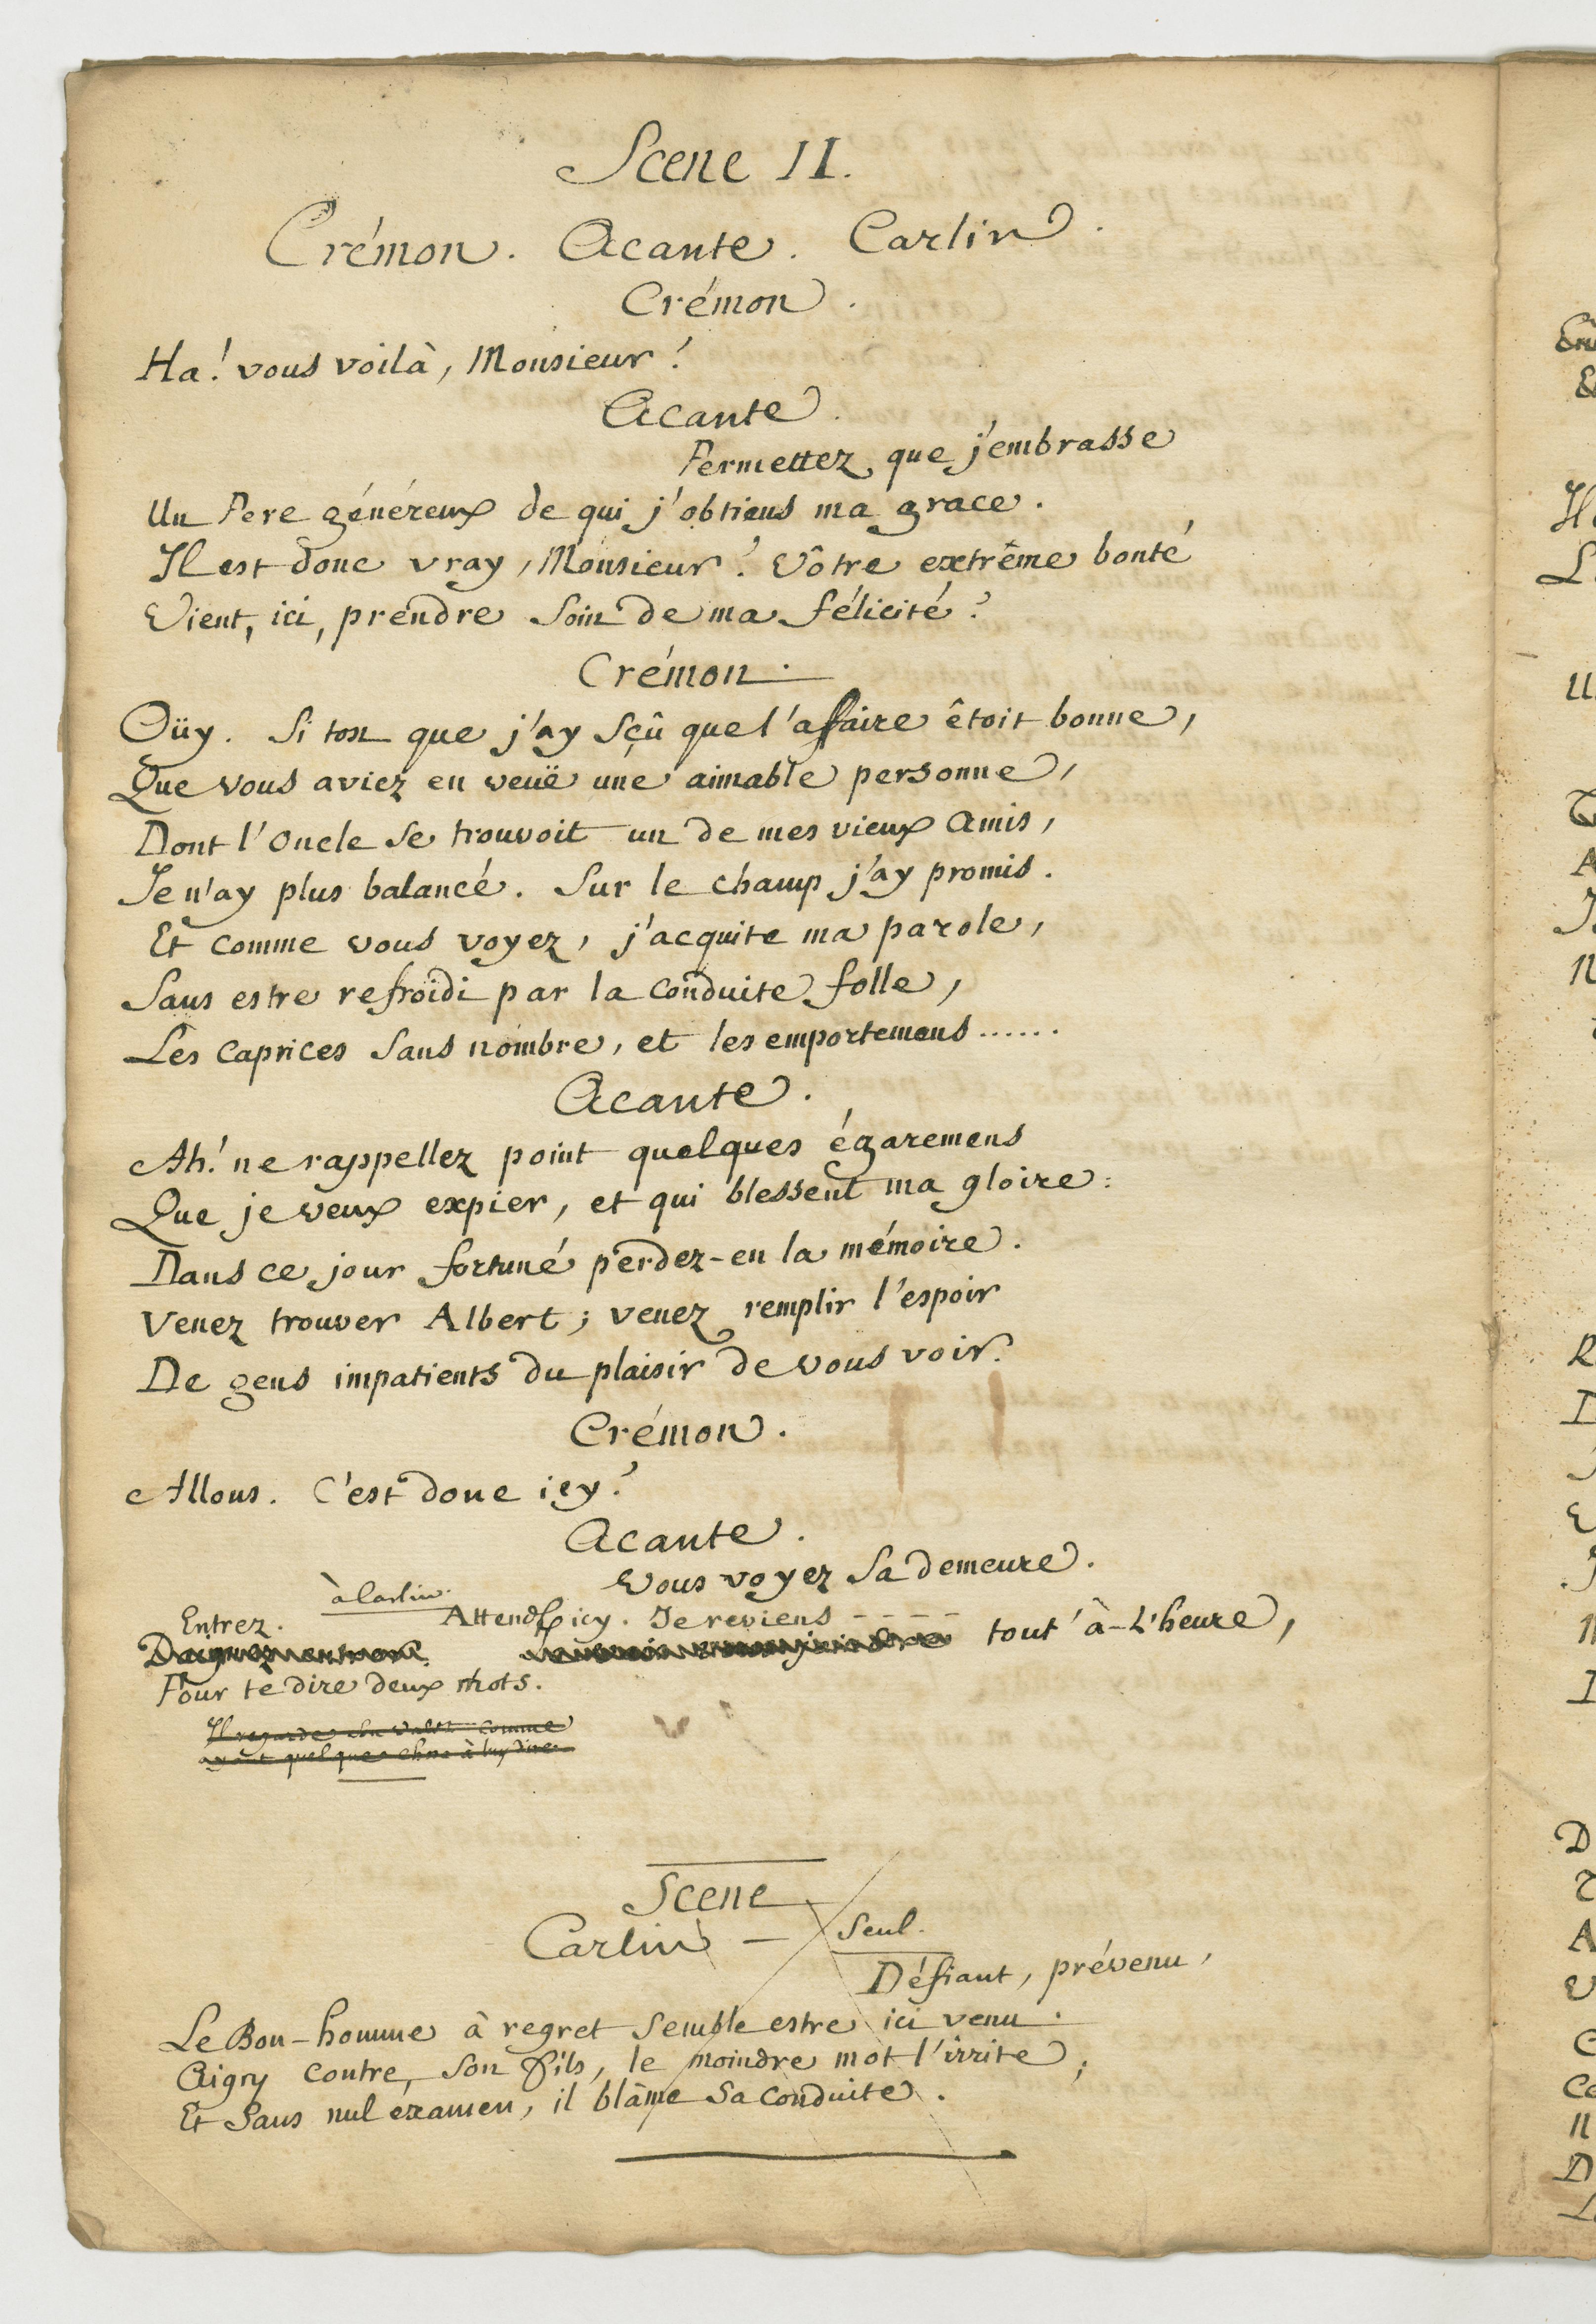 Scene II.
Crémon. Acante. Carlin.
Crémon.
Ha! vous voilà, Monsieur!
Acante.
Permettez que j'embrasse
Un Pere généreux de qui j'obtiens ma grace.
Il est donc vray, Monsieur? Vôtre extrême bonté
Vient, ici, prendre soin de ma félicité?
Crémon.
Oüy. Si tost que j'ay sçû que l'affaire êtoit bonne,
Que vous aviez en veuë une aimable personne,
Dont l'Oncle se trouvoit un de mes vieux Amis,
Je n'ay plus balancé. Sur le champ j'ay promis.
Et comme vous voyez, j'acquite ma parole,
Sans estre refroidi par la conduite folle,
Les Caprices sans nombre, et les emportemens......
Acante.
Ah! ne rappellez point quelques égaremens
Que je veux expier, et qui blessent ma gloire:
Dans ce jour fortuné perdez-en la mémoire.
Venez trouver Albert; venez remplir l'espoir
De gens impatients du plaisir de vous voir.
Crémon.
Allons. C'est donc icy?
Acante.
Vous voyez sa demeure.
à Carlin.
Entrez. Attends icy. Je reviens - - - -
tout à-l'heure,
Pour te dire deux mots.
Il regarde son valet comme
ayant quelque chose à luy dire.
Scene
Carlin — seul.
Défiant, prévenu,
Le Bon-homme à regret semble estre ici venu.
Aigry contre, son fils, le moindre mot l'irrite;
Et sans nul examen, il blâme sa conduite.